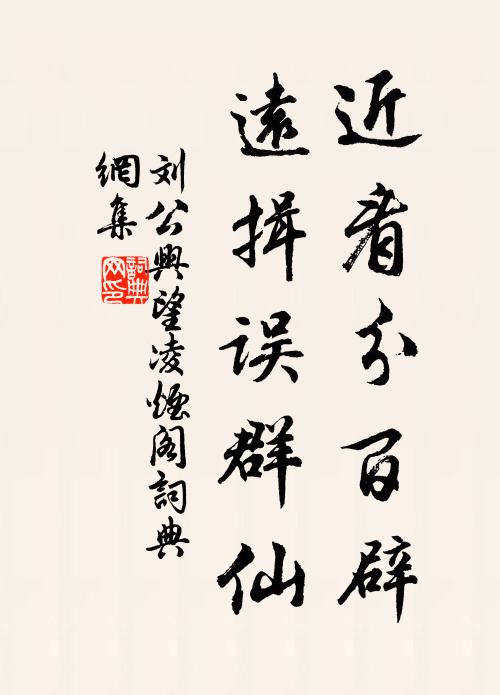 近看分百辟
遠揖误群仙
刘公興望凌煙阁詞典
網集
詞典網印